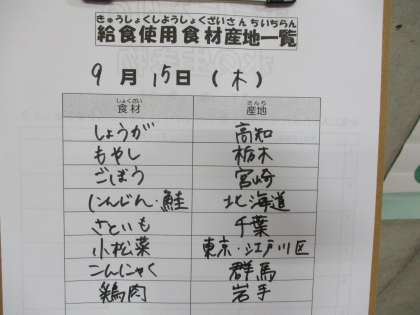 きゅうしょくしようしょくざいさんちいちらん
給食使用食材産地一覧
9月15日(木)
しょくざい さんち
食材 産地
しょうが 高知
もやし 栃木
ごぼう 宮崎
にんじん・鮭 北海道
さといも 千葉
小松菜 東京・江戸川区
こんにゃく 群馬
鶏肉 岩手